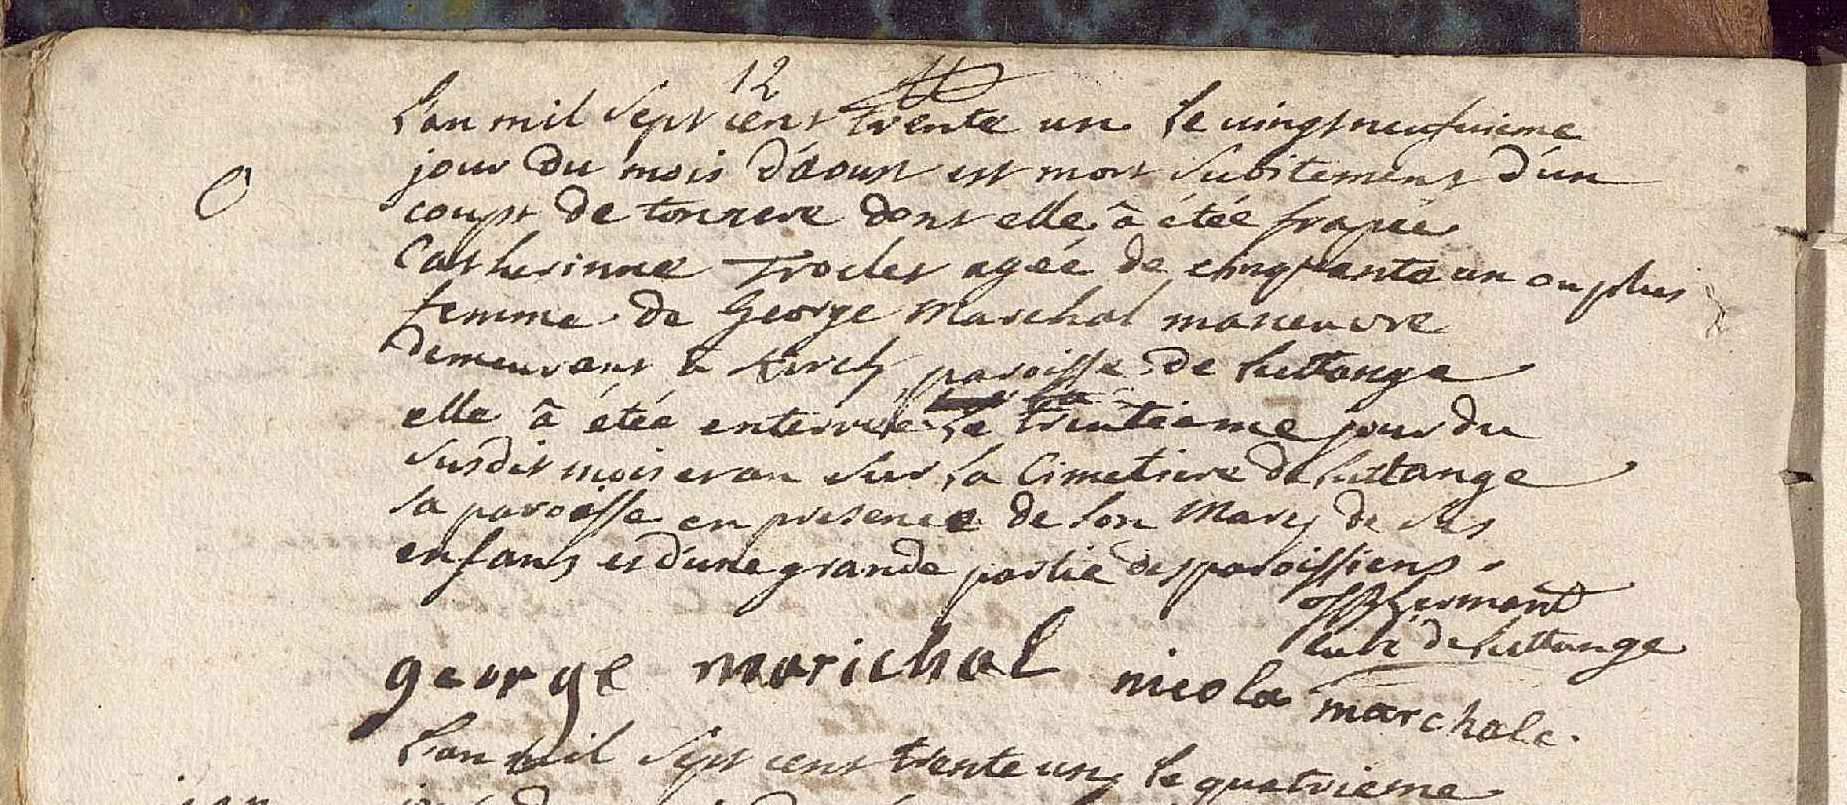 12
L'an mil Sept cent trente un le vingt neufvieme
jour du mois d'aoust est mort subitement d'un
coupt de tonnere dont elle â étée frapée
Catherinne Troclet agéé de cinquante un ou plus
femme de George Marchal maneuvre
demeurant a Kirch paroisse de Luttange
elle â étée enterrée le trentieme jour du
susdit mois et an sur la Cimetiere de Luttange
sa paroisse en presence de son Mary de ses
enfans et d'une grande partie des paroissiens.
Curé de Luttange
george marichal nicola marchale.
L'an mil Sept cent trente un le quatrieme